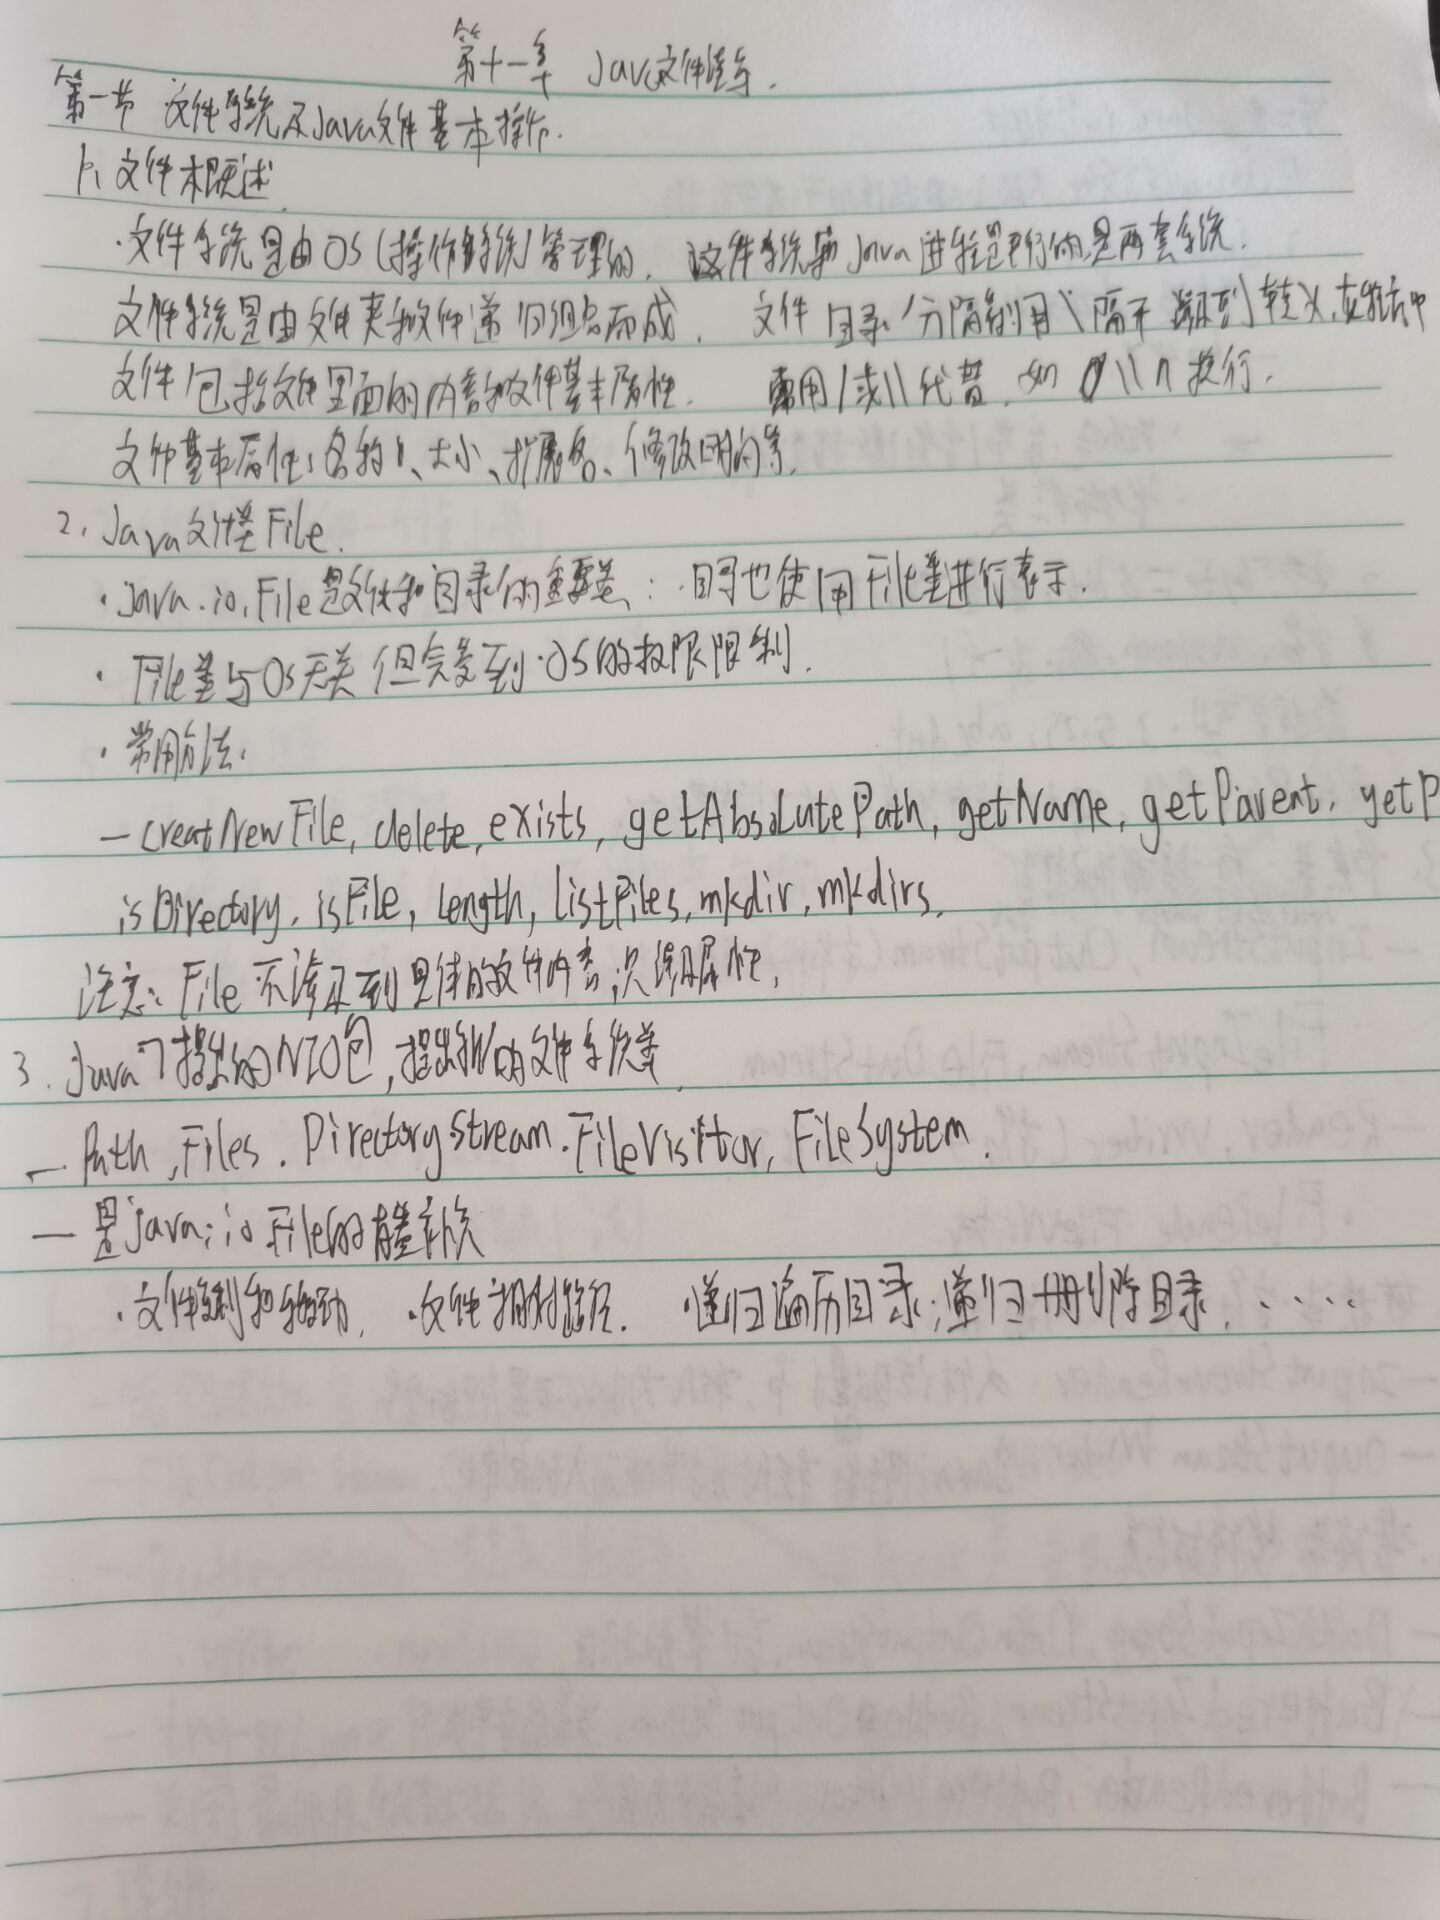 第十一章 Java文件读写.
第一节 文件系统及Java文件基本操作.
1、文件概述
·文件系统是由OS(操作系统)管理的. 文件系统和Java进程是平行的,是两套系统.
文件系统是由文件夹和文件递归组合而成. 文件目录分隔符用\隔开 转义,在
文件包括文件里面的内容和文件基本属性. 需用/或\\代替. 如 \\n 换行.
文件基本属性:名称、大小、扩展名、修改时间等.
2. Java文件类File.
·java.io.File是文件和目录的重要类:目录也使用File类进行表示.
·File类与OS无关 但会受到OS的权限限制.
·常用方法.
—creatNewFile, delete, exists, getAbsolutePath, getName, getParent, getP
isDirectory. isFile, length, listFiles, mkdir, mkdirs.
注意: File不涉及到具体的文件内容,只涉及属性.
3. Java7提出的NIO包,提出新的文件系统类
— Path, Files. DirectoryStream. FileVisitor, FileSystem.
— 是java.io.File的有益补充
·文件复制和移动. ·文件相对路径. ·递归遍历目录;递归删除目录.....